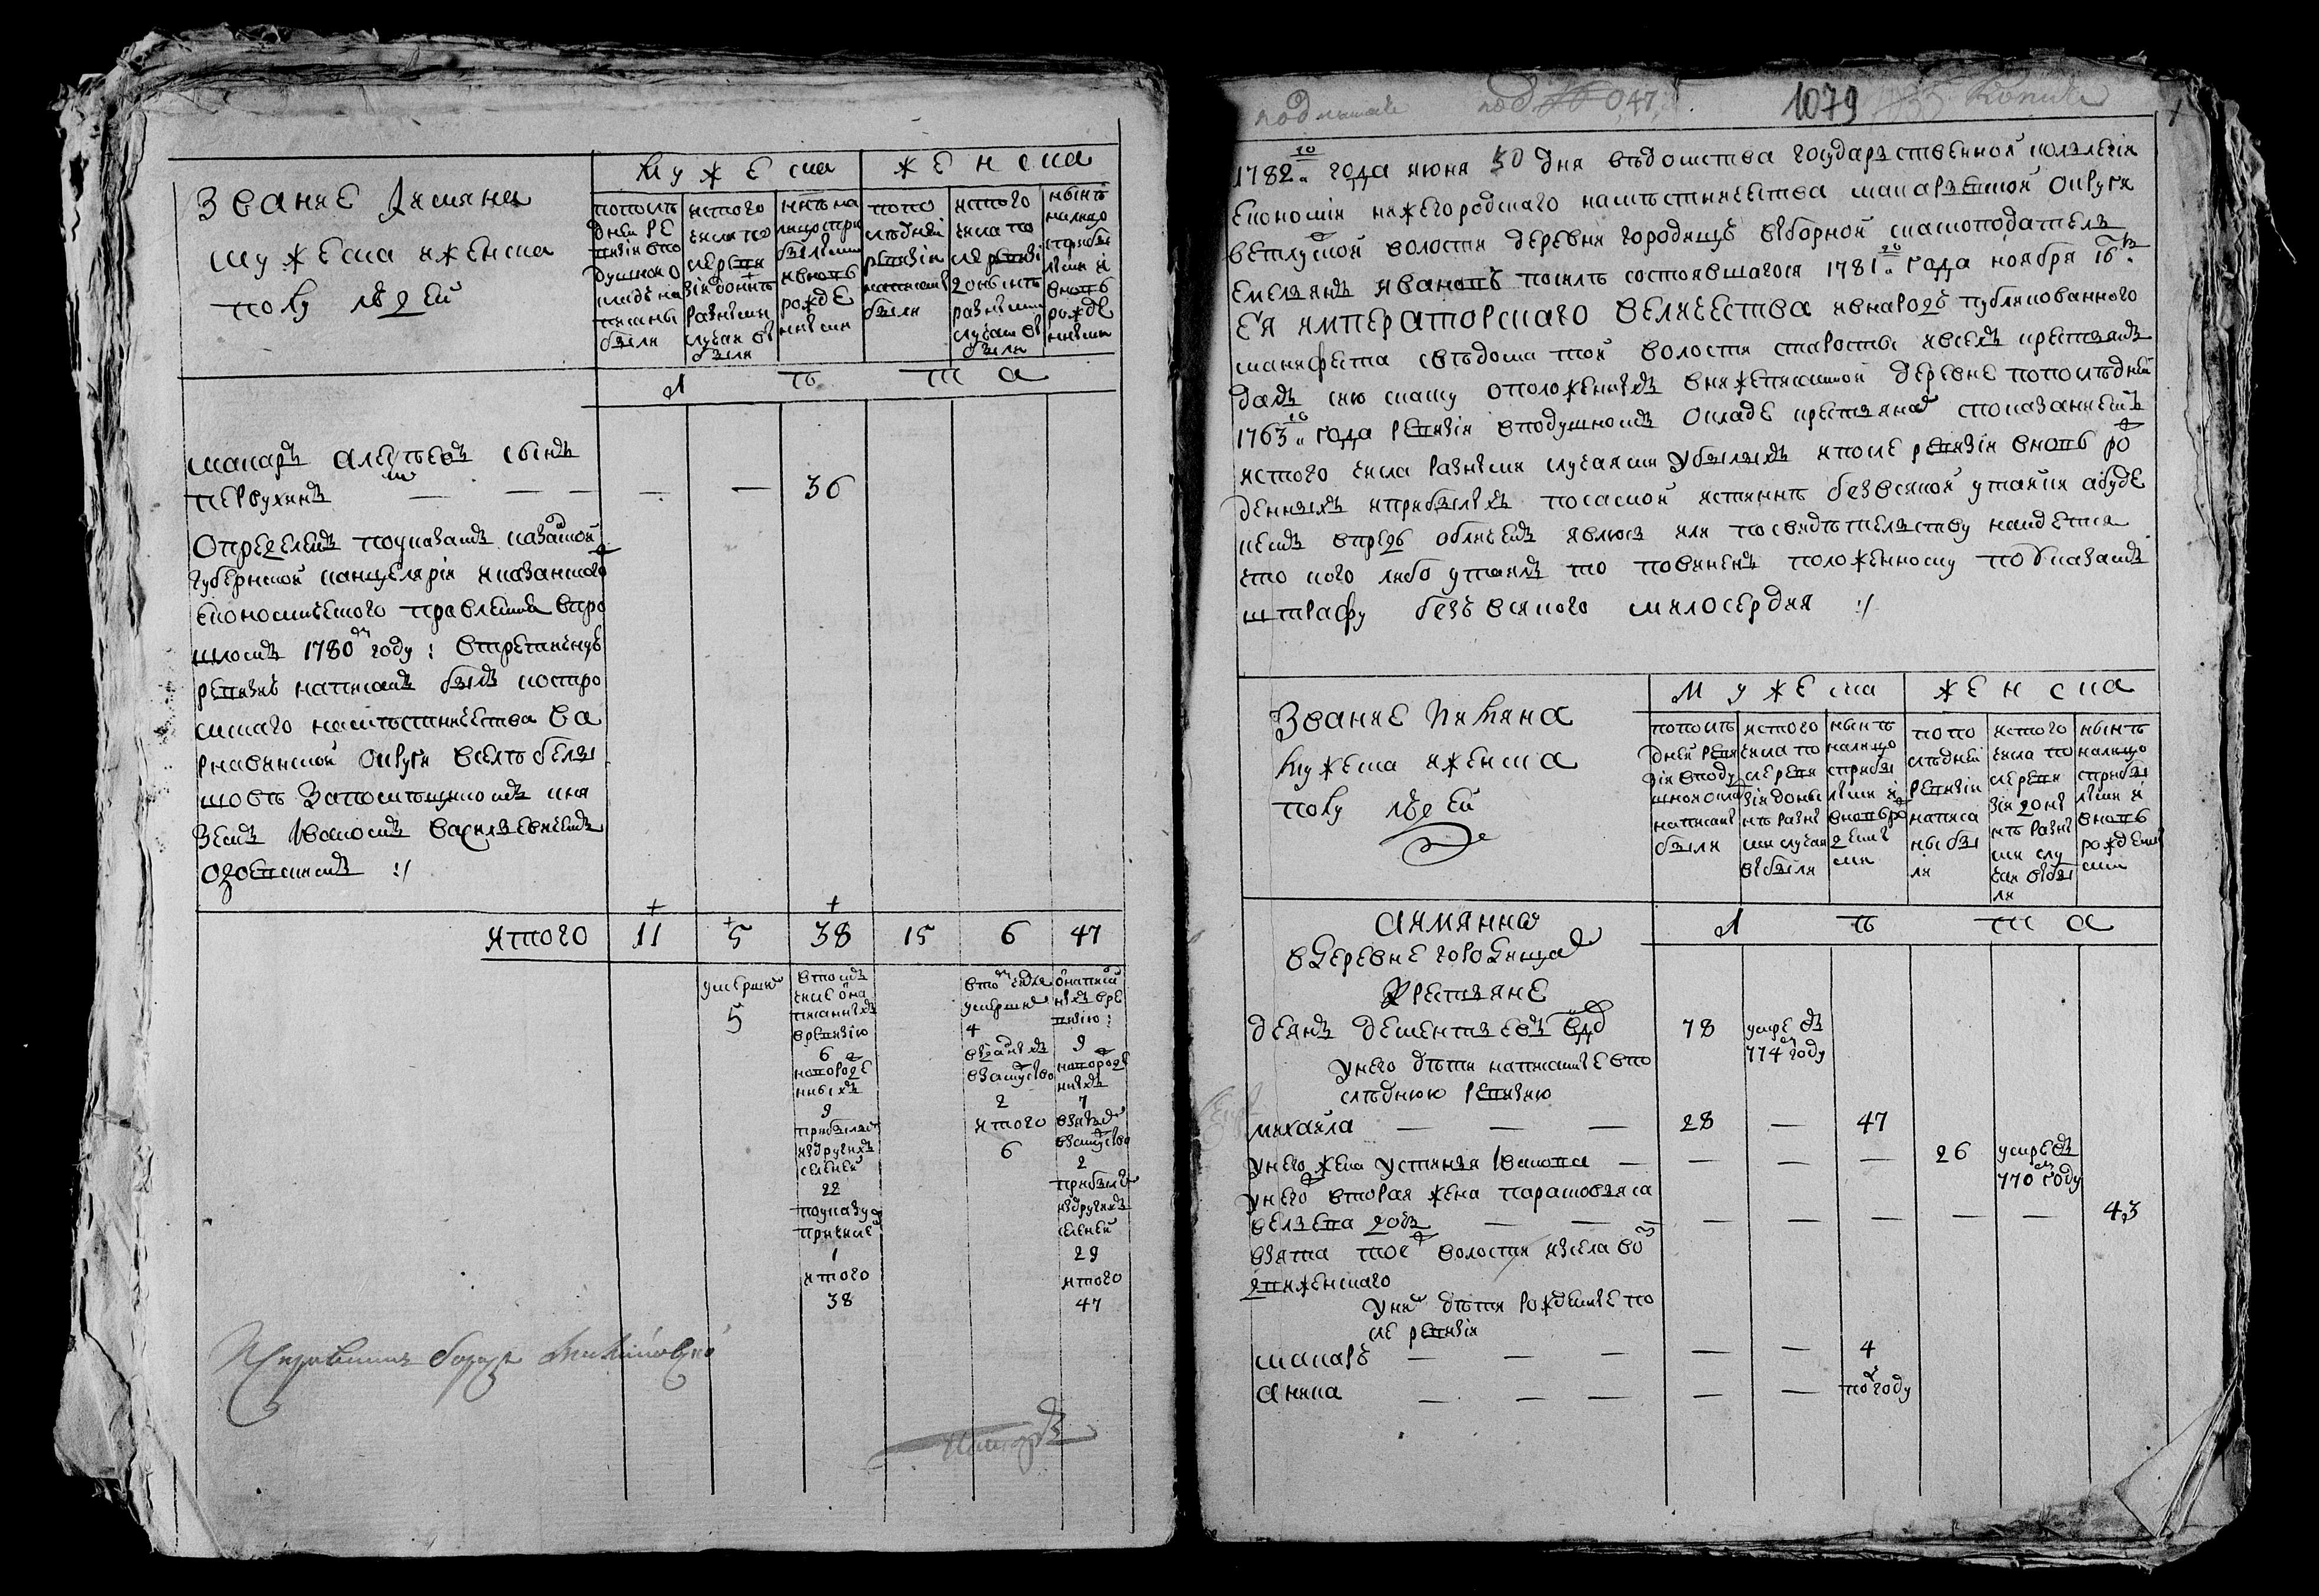 Звание Имяна
мужеска иженска
полу людей
Мужеска
Женска
попослѣ
дней ре
визіи впо
душной о
кладъ на
писаны
были
истого
числа по
слѣ реви
зіи донынѣ
разными
случаи вы
были
нынѣ на
лицо спри
былыми
ивновь
рожде
ными
попо
слѣдней
ревизіи
написаны
были
истого
числа по
сле ревизі
доныне
разными
случаи вы
были
нынѣ
налицо
сприбы
лыми и
вновь
рожде
ными
лѣта
макаръ алеѯѣевъ сынъ
первухинъ — — — — — 36
Определенъ поуказамъ казанской
губернской канцеляріи иказанского
економического правления впро
шломъ 1780м году : втретьичную
ревизию написанъ былъ костро
мскаго намѣстничества ва
рнавинской округи вселѣ белы
шовѣ Запомѣщикомъ кня
земъ Иваномъ васильевичемъ
одоевскимъ :/
итого 11 5 38 15 6 47
умерших
5
втомъ
числе она
писанныхъ
вревизию
6
новороже
нныхъ
9
прибылых
издругихъ
селеней
22
поуказу
причисле
1
итого
38
втом числе
умерших
4
выданыхъ
взамужство
2
итого
6
онаписан
ныхъ вре
визию :
9
новороже
ныхъ
7
взятых
взамужство
2
прибылых
издругихъ
селеней
29
итого
47
1079
1782го года июня 30 дня вѣдомства государственной коллегіи
економіи нижегородскаго намѣстничества макарьевской округи
ветлужской волости деревни городище выборной скаскоподатель
емельянъ ивановъ посилѣ состоявшагося 1781го года ноября 16го
Ея императорскаго величества ивнародъ публикованного
манифеста свѣдома той волости старосты ивсехъ крестьянъ
далъ сию скаску оположенныхъ внижеписанной деревне попослѣдней
1763го года ревизіи вподушномъ окладе крестьянах споказаниемъ
истого числа разными случаями убылыхъ ипосле ревизіи вновь рож
денныхъ иприбылыхъ посамой истиннѣ безвсякой утайки абуде
кемъ впредь обличенъ явлюсь или посвидѣтельству найдется
что кого либо утаилъ то повиненъ положенному поуказамъ
штрафу безъ всякого милосердия :/
Звание Имяна
мужеска иженска
полу людей
Мужеска
Женска
попослѣ
дней реви
зіи вподу
шной окла
написаны
были
истого
числа по
сле реви
зіи доны
нѣ разны
ми случаи
выбыли
нынѣ
налицо
сприбы
лыми и
вновь рож
дены
ми
попо
слѣдней
ревизіи
написа
ны бы
ли
истого
числа по
сле реви
зіи доны
нѣ разны
ми слу
чаи выбы
ли
нынѣ
налицо
сприбы
лыми и
вновь
рожденны
ми
аимянно
вдеревне городищах
Крестьяне
лѣта
деянъ дементьевъ вдов 78 умре въ
774м году
унего дѣти написанные впо
слѣднюю ревизию
михаила — — — 28 — 47
унего жена устинья Иванова — — — — 26 умре въ
770м году
унего вторая жена парасковья са
вельева дочь — — — — — — — — 43
взята тоеж волости изсела воз
движенскаго
уних дѣти рожденные по
сле ревизіи
макаръ — — — — — 4
аника — — — — — полгоду